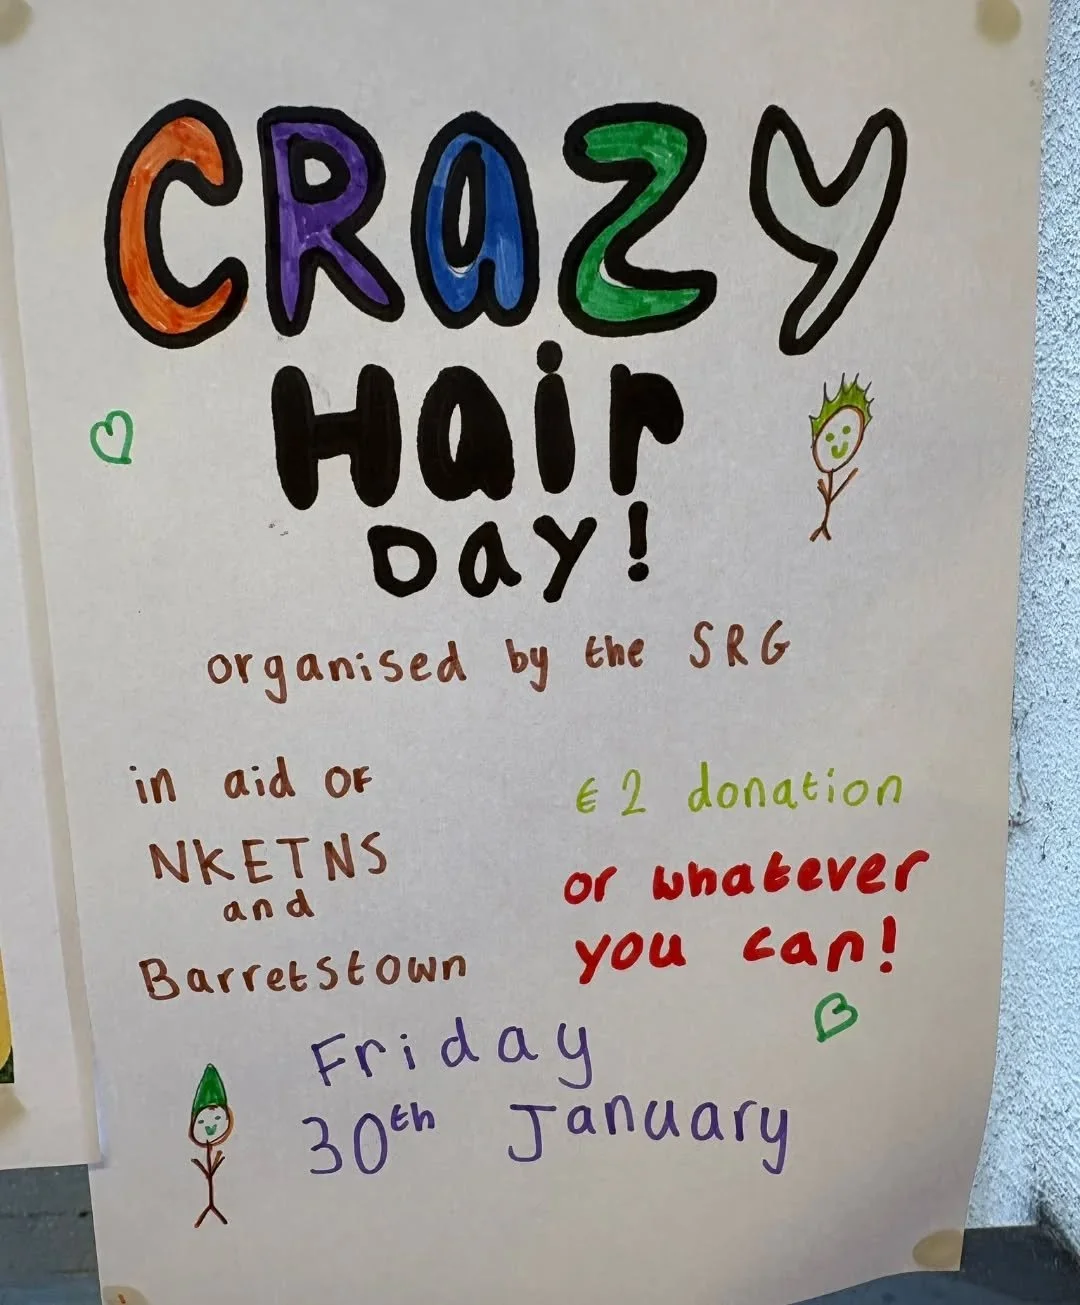 CRaZY
Hair
Day!
organised by the SRG
in aid OF
NKETNS
and
Barretstown
€2 donation
or whatever
you can!
Friday
30th January